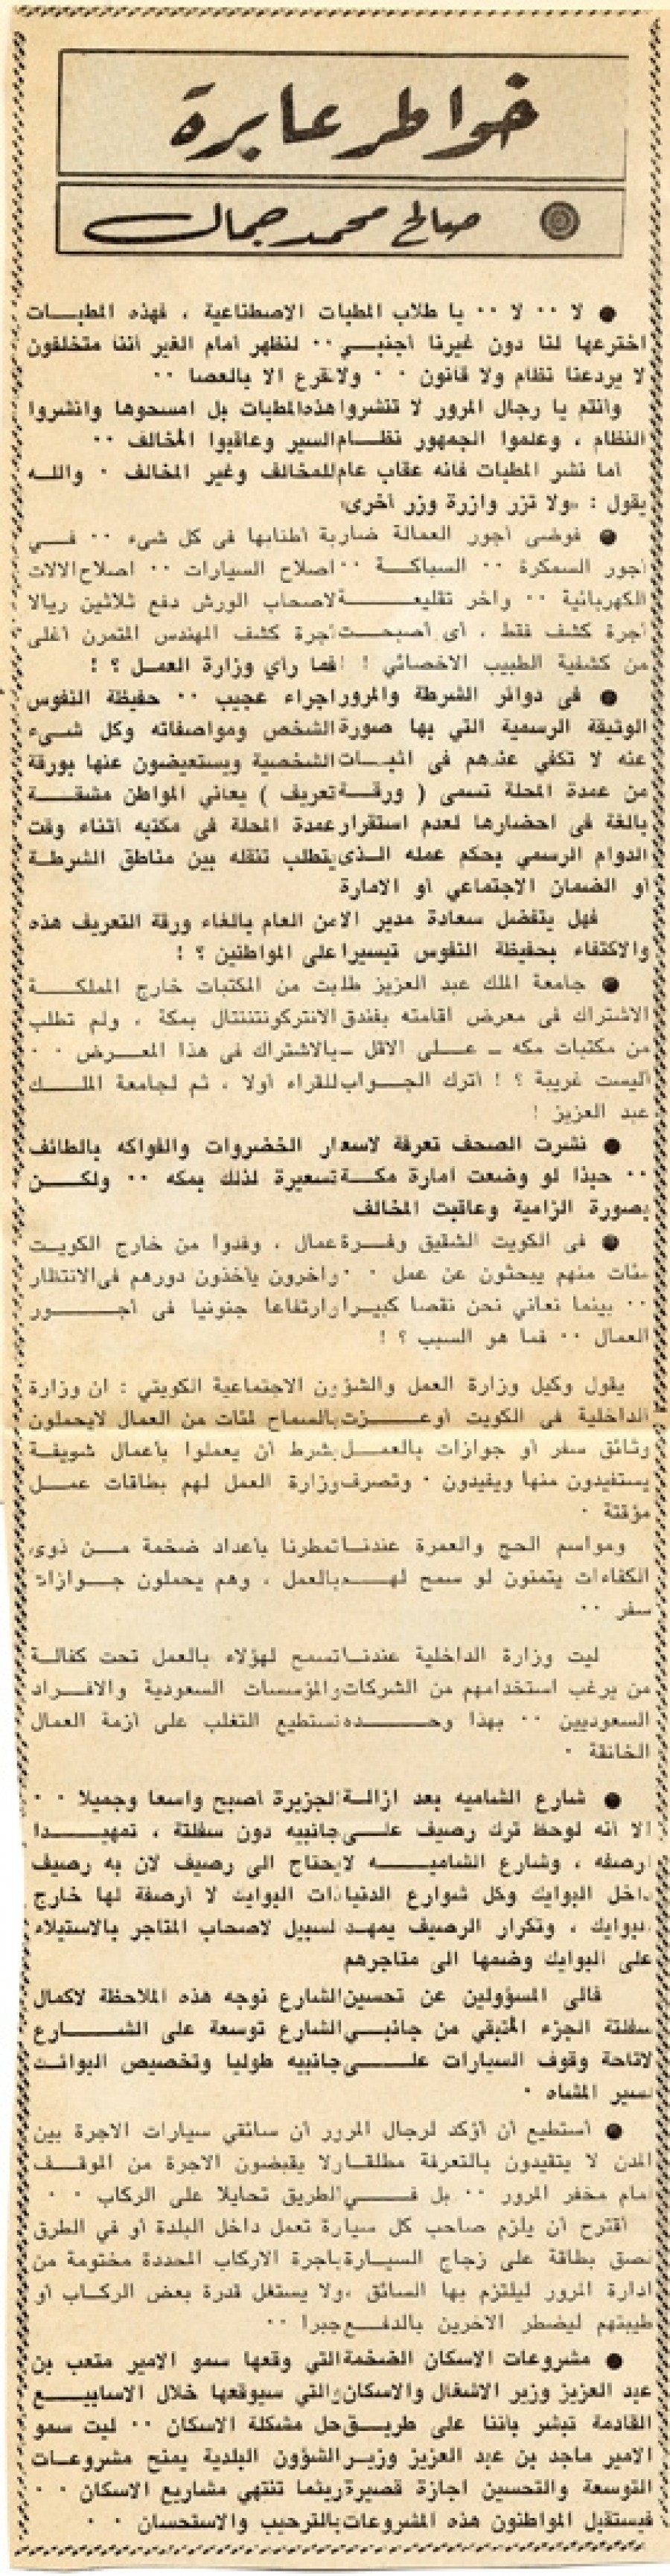 خواطر عابرة
صالح محمد جمال
● لا ٠٠ لا ٠٠ يا طلاب المطبات الاصطناعية ، فهذه المطبـــات
اخترعها لنا دون غيرنا أجنبـــي ٠٠ لنظهر أمام الغير أننا متخلفون
لا يردعنا نظام ولا قانون ٠ ٠ ولا نقرع الا بالعصا ٠٠
وأنتم يا رجال المرور لا تنشروا هذه المطبات بل امسحوها وانشروا
النظام ، وعلموا الجمهور نظـــام السير وعاقبوا المخالف ٠٠
أما نشر المطبات فانه عقاب عام للمخالف وغير المخالف ٠ واللـــه
يقول : «ولا تزر وازرة وزر أخرى»
● فوضى أجور العمالة ضاربة أطنابها فى كل شىء ٠٠ فـــي
أجور السمكرة ٠٠ السباكـــة ٠٠ اصلاح السيارات ٠٠ اصلاح الالات
الكهربائية ٠٠ وآخر تقليعـــــة لاصحاب الورش دفع ثلاثين ريالا
أجرة كشف فقط ، أى أصبحـــت أجرة كشف المهندس المتمرن أغلى
من كشفية الطبيب الاخصائي ! ! فما رأي وزارة العمـــل ؟ !
● فى دوائر الشرطة والمرور اجراء عجيب ٠٠ حفيظة النفوس
الوثيقة الرسمية التي بها صورة الشخص ومواصفاته وكل شـــىء
عنه لا تكفي عندهم فى اثبـــات الشخصية ويستعيضون عنها بورقة
من عمدة المحلة تسمى ( ورقـــة تعريف ) يعاني المواطن مشقـــة
بالغة فى احضارها لعدم استقرار عمدة المحلة فى مكتبه أثناء وقت
الدوام الرسمي بحكم عمله الـــذى يتطلب تنقله بين مناطق الشرطـة
أو الضمان الاجتماعي أو الامارة
فهل يتفضل سعادة مدير الامن العام بالغاء ورقة التعريف هذه
والاكتفاء بحفيظة النفوس تيسيرا على المواطنين ؟ !
● جامعة الملك عبد العزيز طلبت من المكتبات خارج المملكـــة
الاشتراك فى معرض اقامته بفندق الانتركونتننتال بمكة ، ولم تطلب
من مكتبات مكه ــ عـــلى الاقل ــ بالاشتراك فى هذا المعـــرض ٠ ٠
أليست غريبة ؟ ! أترك الجـــواب للقراء أولا ، ثم لجامعة الملـــك
عبد العزيز !
● نشرت الصحف تعرفة لاسعار الخضروات والفواكه بالطائف
٠٠ حبذا لو وضعت امارة مكـــة تسعيرة لذلك بمكه ٠٠ ولكـــن
بصورة الزامية وعاقبت المخالف
● فى الكويت الشقيق وفـــرة عمال ، وفدوا من خارج الكويـت
مئات منهم يبحثون عن عمل ٠ ٠ وآخرون يأخذون دورهم فى الانتظار
٠٠ بينما نعاني نحن نقصا كبيـرا وارتفاعا جنونيا فى أجـــــور
العمال ٠٠ فما هو السبب ؟ !
يقول وكيل وزارة العمل والشؤون الاجتماعية الكويتي : ان وزارة
الداخلية فى الكويت أوعـــــزت بالسماح لمئات من العمال لايحملون
وثائق سفر أو جوازات بالعمـــل بشرط أن يعملوا بأعمال شريفـة
يستفيدون منها ويفيدون ٠ وتصرف وزارة العمل لهم بطاقات عمـــل
مؤقتة ٠
ومواسم الحج والعمرة عندنـــا تمطرنا بأعداد ضخمة مـــن ذوى
الكفاءات يتمنون لو سمح لهـــم بالعمل ، وهم يحملون جـــوازات
سفر ٠٠
ليت وزارة الداخلية عندنـــا تسمح لهؤلاء بالعمل تحت كفالـــة
من يرغب استخدامهم من الشركات والمؤسسات السعودية والافـــراد
السعوديين ٠٠ بهذا وحـــــده نستطيع التغلب على أزمة العمال
الخانقة ٠
● شارع الشاميه بعد ازالـــة الجزيرة أصبح واسعا وجميلا ٠ ٠
الا أنه لوحظ ترك رصيف علـــى جانبيه دون سفلتة ، تمهيـــــدا
لرصفه ، وشارع الشاميـــــه لا يحتاج الى رصيف لان به رصيف
داخل البوايك وكل شوارع الدنيا ذات البوايك لا أرصفة لها خارج
البوايك ، وتكرار الرصيف يمهـد السبيل لاصحاب المتاجر بالاستيلاء
على البوايك وضمها الى متاجرهم
فالى المسؤولين عن تحسين الشارع نوجه هذه الملاحظة لاكمال
سفلتة الجزء المتبقي من جانبـــي الشارع توسعة على الشـــــارع
لاتاحة وقوف السيارات علـــــى جانبيه طوليا وتخصيص البوائـك
لسير المشاه ٠
● أستطيع أن أؤكد لرجال المرور أن سائقي سيارات الاجرة بين
المدن لا يتقيدون بالتعرفة مطلقـا ولا يقبضون الاجرة من الموقـــف
أمام مخفر المرور ٠٠ بل فـــــي الطريق تحايلا على الركاب ٠ ٠
أقترح أن يلزم صاحب كل سيارة تعمل داخل البلدة أو في الطرق
لصق بطاقة على زجاج السيـارة بأجرة الاركاب المحددة مختومة من
ادارة المرور ليلتزم بها السائق ، ولا يستغل قدرة بعض الركـاب أو
طيبتهم ليضطر الاخرين بالدفـــع جبرا ٠٠
● مشروعات الاسكان الضخمة التي وقعها سمو الامير متعب بن
عبد العزيز وزير الاشغال والاسكان والتي سيوقعها خلال الاسابيـــع
القادمة تبشر باننا على طريـــق حل مشكلة الاسكان ٠٠ ليت سمو
الامير ماجد بن عبد العزيز وزيـر الشؤون البلدية يمنح مشروعـــات
التوسعة والتحسين اجازة قصيرة ريثما تنتهي مشاريع الاسكان ٠ ٠
فيستقبل المواطنون هذه المشروعات بالترحيب والاستحسان ٠ ٠